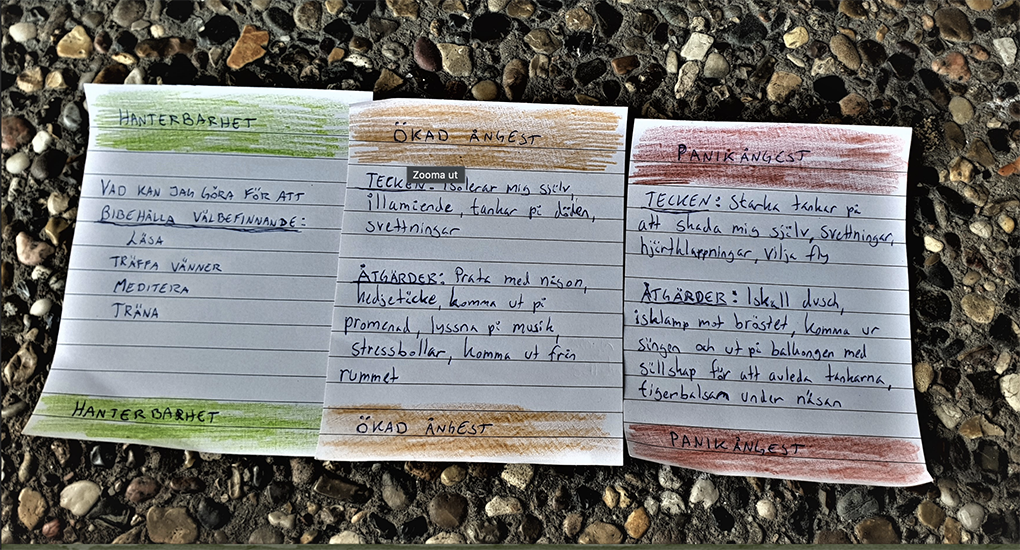 HANTERBARHET
VAD KAN JAG GÖRA FÖR ATT
BIBEHÅLLA VÄLBEFINNANDE:
LÄSA
TRÄFFA VÄNNER
MEDITERA
TRÄNA
HANTERBARHET
ÖKAD ÅNGEST
Zooma ut
TECKEN: Isolerar mig själv,
illamående, tankar på döden,
svettningar
ÅTGÄRDER: Prata med någon,
kedjetäcke, komma ut på
promenad, lyssna på musik,
stressbollar, komma ut från
rummet
ÖKAD ÅNGEST
PANIKÅNGEST
TECKEN: Starka tankar på
att skada mig själv, svettningar,
hjärtklappningar, vilja fly
ÅTGÄRDER: Iskall dusch,
isklamp mot bröstet, komma ur
sängen och ut på balkongen med
sällskap för att avleda tankarna,
tigerbalsam under näsan
PANIKÅNGEST